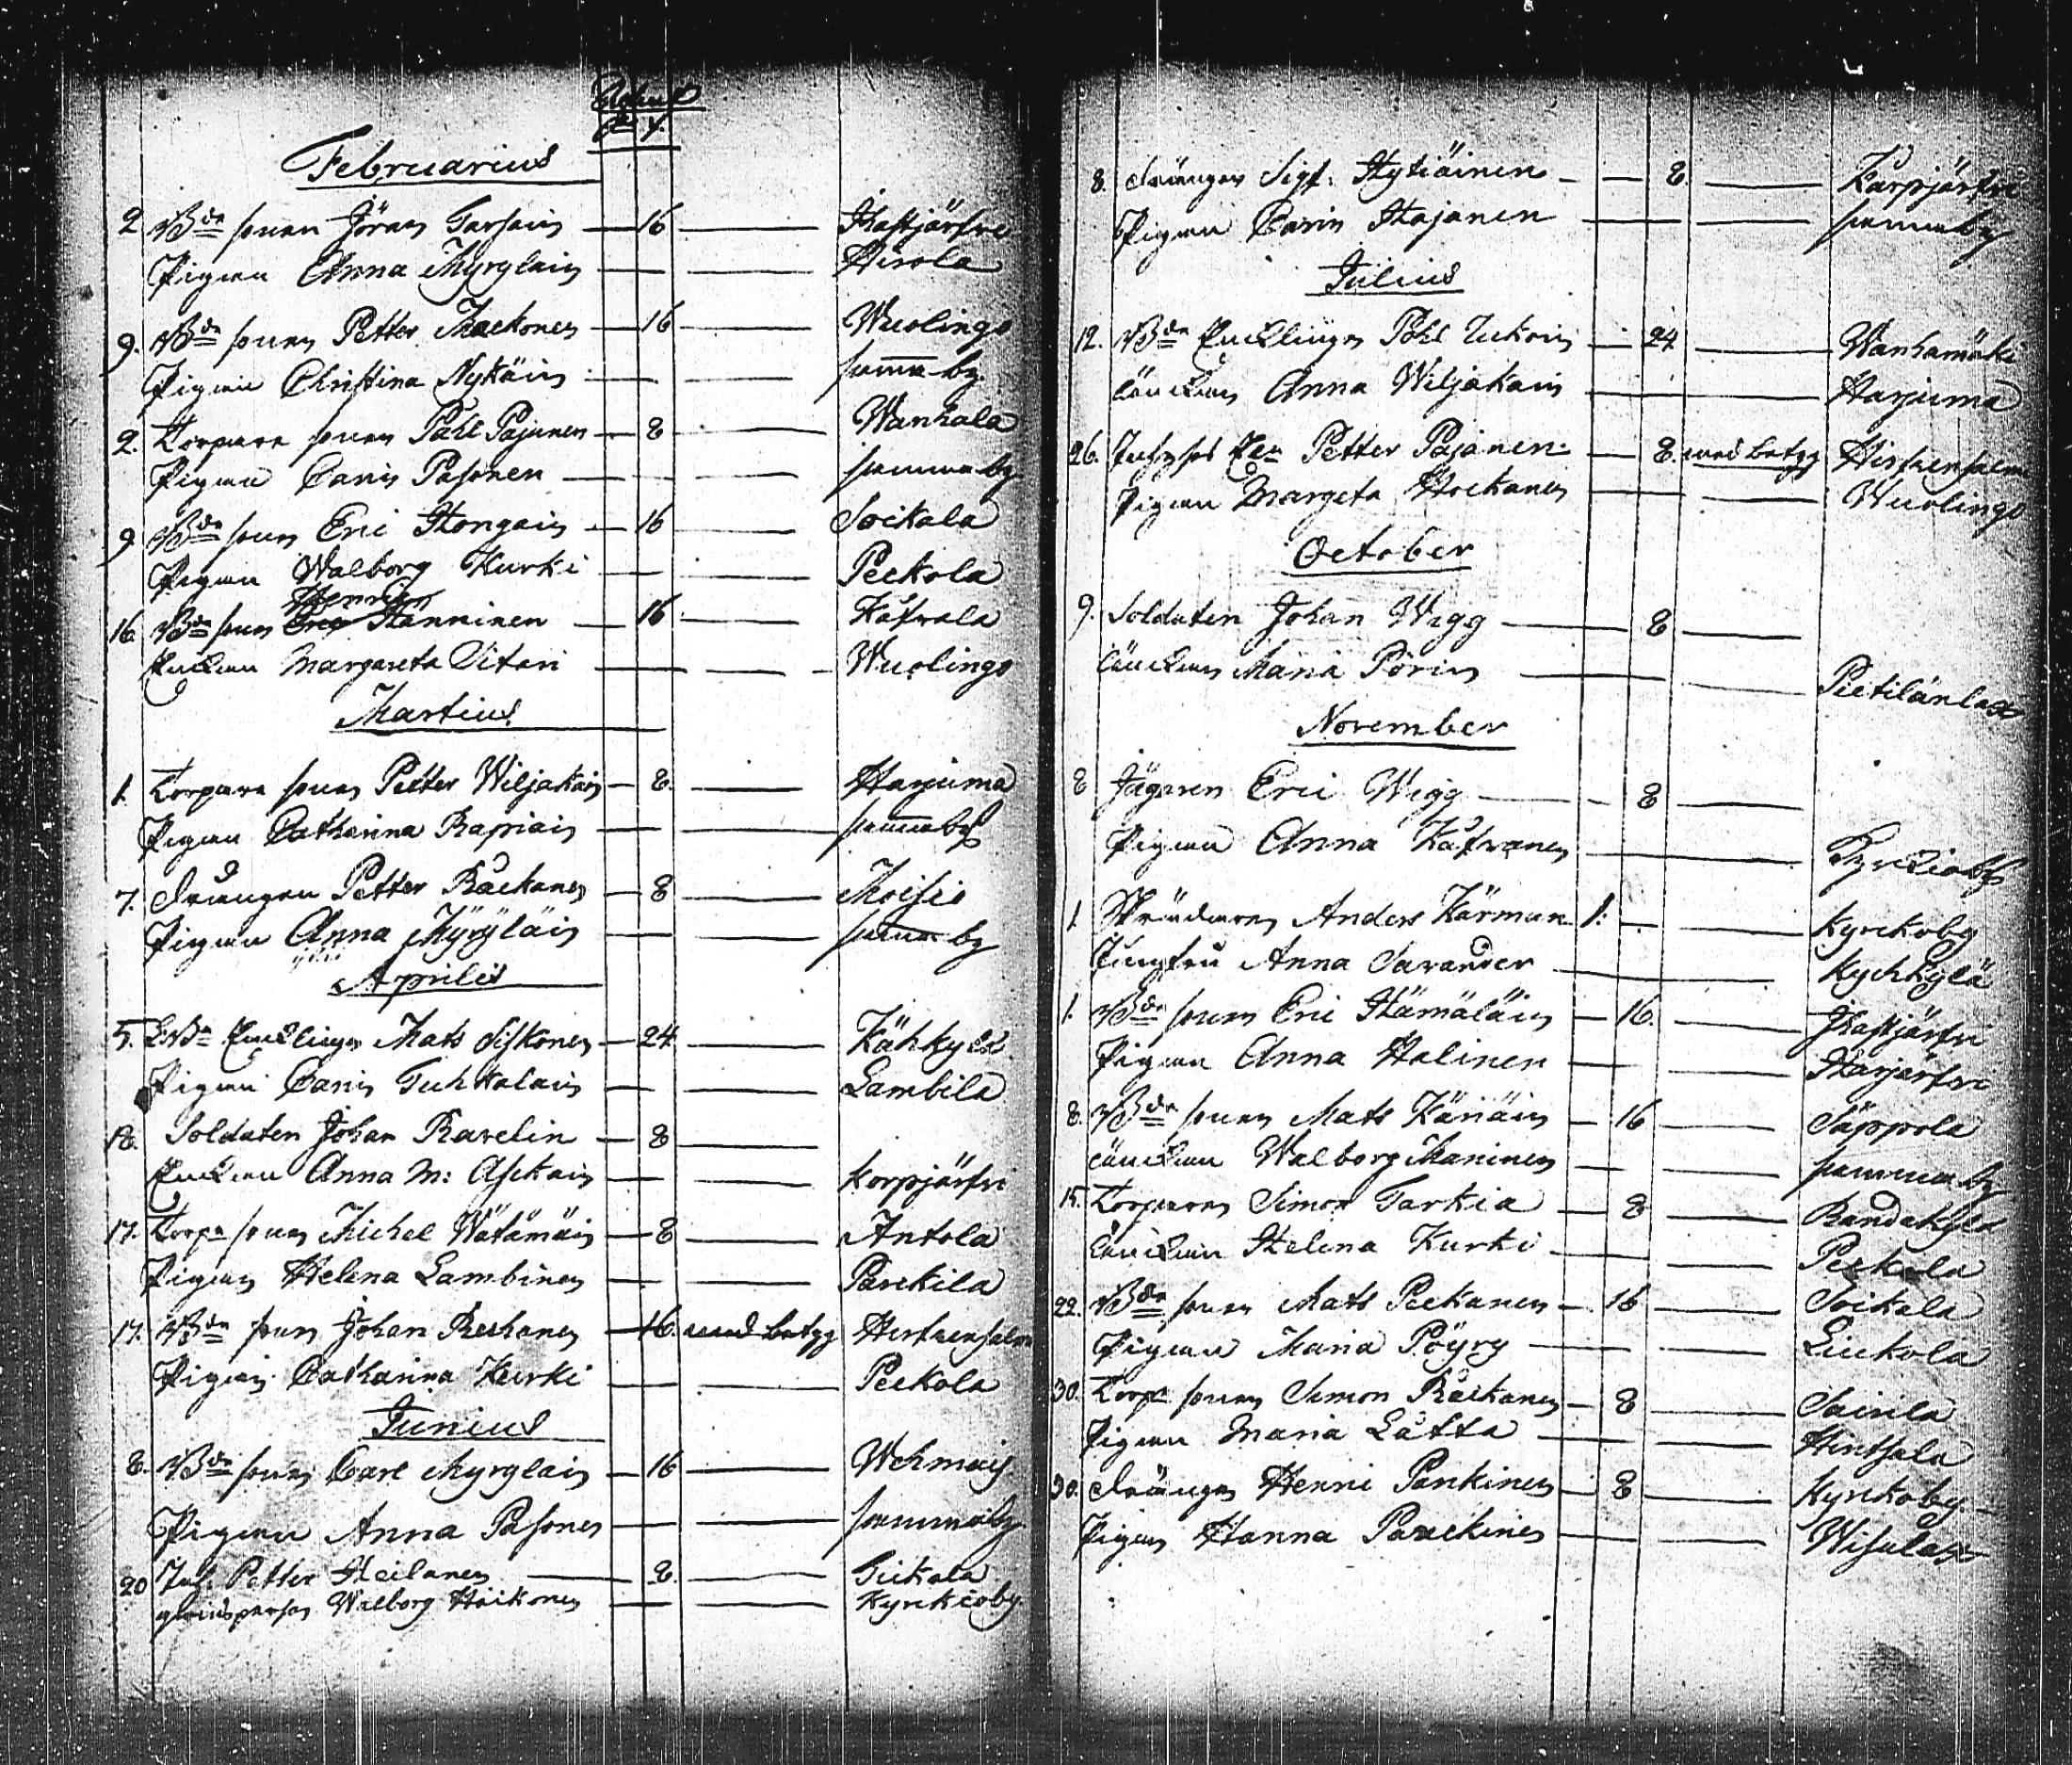 Februarius
2 Bde sonen Jöran Tarfain — 16 — Hastjärfvi
Pigan Anna Myrylain — — Hirola
9. Bde sonen Petter Mackonen — 16 — Wuolingo
Pigan Christina Nykäin — — samma by
2. Torpare sonen Påhl Pajunen — 8 — Wanhala
Pigan Carin Pasonen — — samma by
9. Bde sonen Eric Hongain — 16 — Soikala
Pigan Walborg Kurki — — Peckola
Henrich
16. Bde sonen Eric Hänninen — 16 — Kåfvala
Enkan Margareta Sitari — — Wuolingo
Martius
1. Torpare sonen Petter Wiljakain — 8 — Harjuma
Pigan Catharina Rapiain — — samma by
7. Drängen Petter Räckänen — 8 — Moisio
Pigan Anna Myryläin — — samma by
Aprilis
5. Enklingen Mats Siskonen — 24 — Kähkylä
Pigan Carin Tuhkalain — — Lambila
18. Soldaten Johan Ravelin — 8 —
Enkan Anna M: Asikain — — Korpjärfvi
17. Torpe sonen Michel Wätämäin — 8 — Antola
Pigan Helena Lambinen — — Parckila
17. Bde sonen Johan Reckonen — 16. med betyg Hirfvensalm
Pigan Catharina Kurki — — Peckola
Junius
8. Bde sonen Carl Myrylain — 16 — Wehmais
Pigan Anna Pasonen — — samma by
20 Inh. Petter Heilanen — 8. — Tuckala
qvinspersan Walborg Häikonen — — Kyrckioby
8. Drängen Sigf: Hytiäinen — — 8. — Karpjärfvi
Pigan Carin Hajanen — — samma by
Julius
12. Bde Enklingen Påhl Luckarin — 24 — Wanhamäki
Änkan Anna Wiljakain — — Harjuma
26. Inhyses En Petter Pajanen — 8. med betyg Hirfvensalm
Pigan Margeta Hockanen — — Wuolingo
October
9. Soldaten Johan Wigg — 8 —
Änkan Maria Pörin — — Pietilänlax
November
8 Jägaren Eric Wigg — — 8 —
Pigan Anna Kåfvanen — — Kyrckioby
1. Skräddaren Anders Kärman 1: — — Kyrckoby
Jungfru Anna Savander — — Kyhkylä
1. Bde sonen Eric Hämäläin — 16. — Hastjärfvi
Pigan Anna Halinen — — Harjärfvi
8. Bde sonen Mats Käriäin — 16 — Säppola
Änkan Walborg Maninen — — samma by
15. Torparen Simon Tarkia — 8 — Randakylä
Änkan Helena Kurki — — Peckola
22. Bde sonen Mats Peckanen — 16 — Soikala
Pigan Maria Pöyry — — Liuckola
30. Torpe sonen Simon Räickänen — 8 — Sairila
Pigan Maria Låtta — — Hintsala
30. Dränge Henric Pankinen — 8 — Kyrckoby
Pigan Hanna Parckinen — — Wisulax